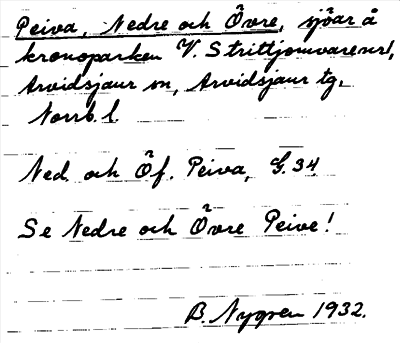 Peiva, Nedre och Övre, sjöar å
kronoparken V. Strittjomvare nr 1,
Arvidsjaur sn, Arvidsjaur tg,
Norrb. l.
Ned. och Öf. Peiva, G. 34
Se Nedre och Övre Peive!
B. Nygren 1932.